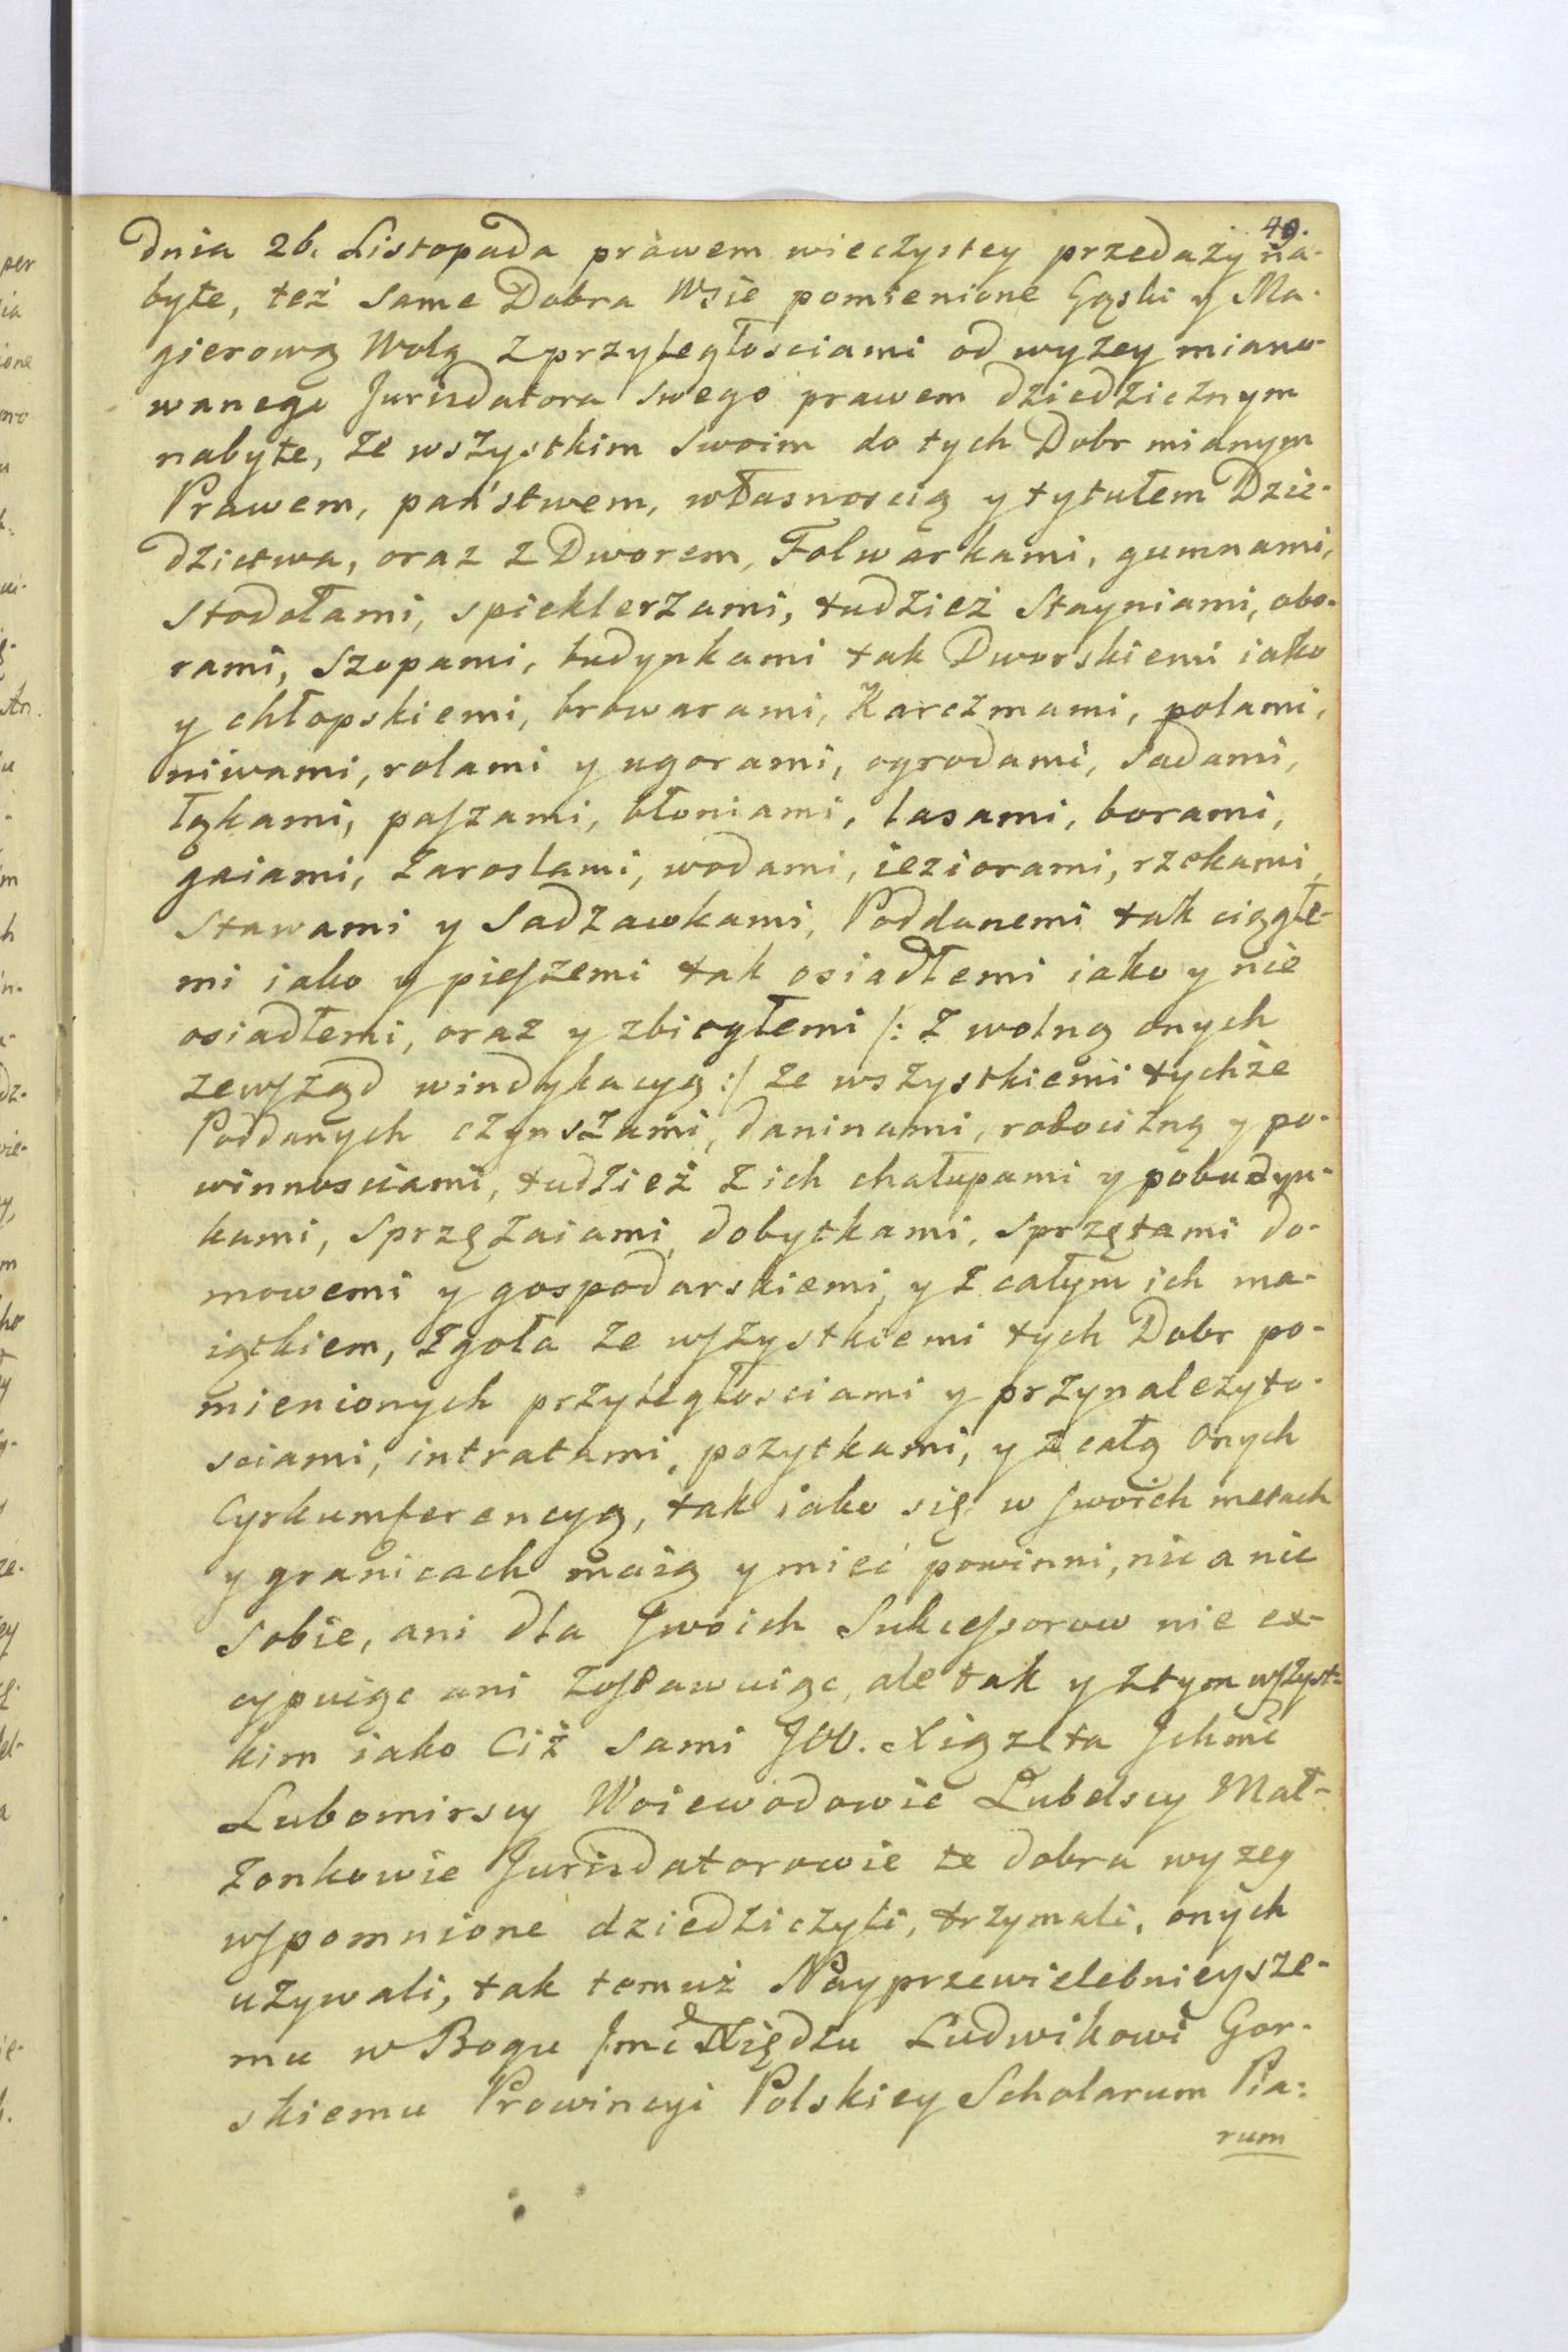 49.
Dnia 26. Listopada prawem wieczystey przedaży na-
byte, też same Dobra Wsie pomienione Gąski y Ma-
gierową Wolą z przyległościami od wyżey miano-
wanego Jurisdatora swego prawem dziedzicznym
nabyte, ze wszystkim swoim do tych Dobr mianym
Prawem, państwem, własnoscią y tytułem Dzie-
dzictwa, oraz z Dworem, Folwarkami, gumnami,
stodołami, spieklerzami, tudzież Stayniami, obo-
rami, Szopami, budynkami tak Dworskiemi iako
y chłopskiemi, browarami, Karczmami, polami,
niwami, rolami y ugorami, ogrodami, Sadami,
łąkami, paszami, błoniami, lasami, borami,
gaiami, zaroslami, wodami, ieziorami, rzekami,
Stawami y Sadzawkami, Poddanemi tak ciągłe-
mi iako y pieszemi tak osiadłemi iako y nie
osiadłemi, oraz y zbiegłemi /: z wolną onych
zewsząd windykacyą :/ ze wszystkiemi tychże
Poddanych czynszami, daninami, robocizną y po-
winnosciami, tudzież z ich chałupami y pobudyn-
kami, Sprzężaiami, dobytkami, sprzętami do-
mowemi y gospodarskiemi, y z całym ich ma-
iątkiem, zgoła ze wszystkiemi tych Dobr po-
mienionych przyległosciami y przynależyto-
sciami, intratami, pożytkami, y z całą Onych
Cyrkumferencyą, tak iako się w swoich metach
y granicach maią y mieć powinni, nic a nic
Sobie, ani dla swoich Sukcessorow nie ex-
cypuiąc ani zostawuiąc, ale tak y z tym wszyst-
kim iako Ciż Sami JOO. Xiążęta Jchmć
Lubomirscy Woiewodowie Lubelscy Mał-
żonkowie Jurisdatorowie te dobra wyzey
wspomnione dziedziczyli, trzymali, onych
używali, tak temuż Nayprzewielebnieysze-
mu w Bogu Jmć Xiędzu Ludwikowi Gor-
skiemu Prowincyi Polskiey Scholarum Pia:
rum